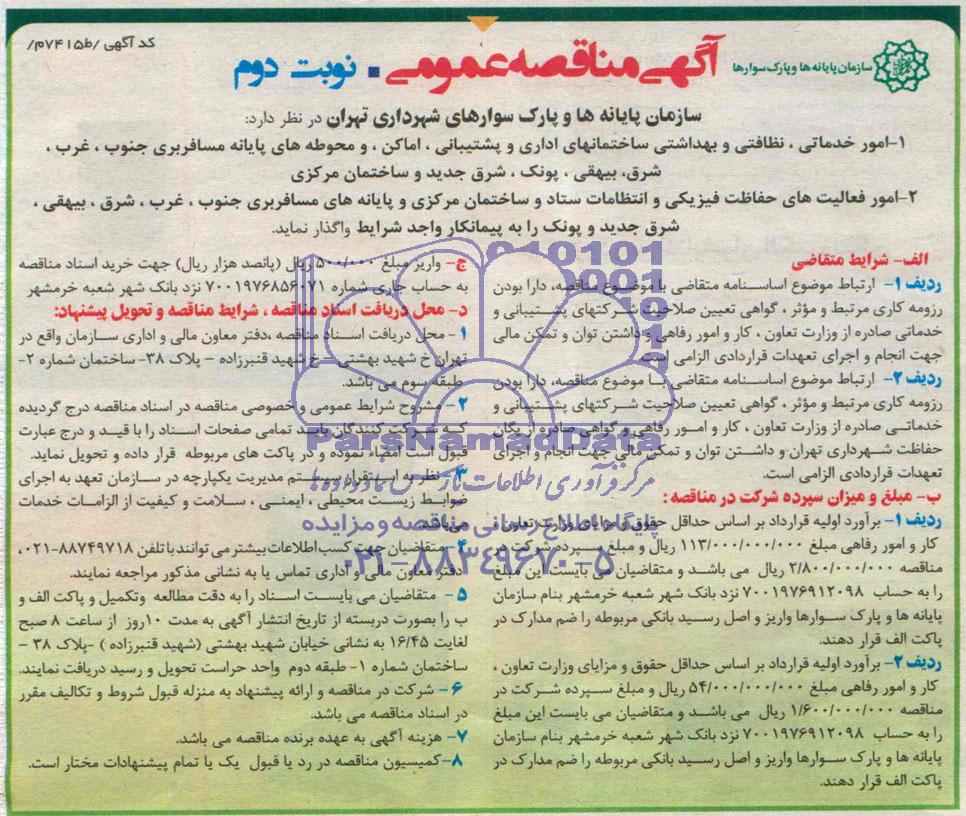 کد آگهی /ط۷۴۱۵م/
سازمان پایانه ها و پارک سوارها
آگهی مناقصه عمومی . نوبت دوم
سازمان پایانه ها و پارک سوارهای شهرداری تهران در نظر دارد:
۱-امور خدماتی ، نظافتی و بهداشتی ساختمانهای اداری و پشتیبانی ، اماکن ، و محوطه های پایانه مسافربری جنوب ، غرب ،
شرق، بیهقی ، پونک ، شرق جدید و ساختمان مرکزی
۲-امور فعالیت های حفاظت فیزیکی و انتظامات ستاد و ساختمان مرکزی و پایانه های مسافربری جنوب ، غرب ، شرق ، بیهقی ،
شرق جدید و پونک را به پیمانکار واجد شرایط واگذار نماید.
الف- شرایط متقاضی
ردیف ۱- ارتباط موضوع اساسنامه متقاضی با موضوع مناقصه، دارا بودن
رزومه کاری مرتبط و مؤثر ، گواهی تعیین صلاحیت شرکتهای پشتیبانی و
خدماتی صادره از وزارت تعاون ، کار و امور رفاهی و داشتن توان و تمکن مالی
جهت انجام و اجرای تعهدات قراردادی الزامی است.
ردیف ۲- ارتباط موضوع اساسنامه متقاضی با موضوع مناقصه، دارا بودن
رزومه کاری مرتبط و مؤثر ، گواهی تعیین صلاحیت شرکتهای پشتیبانی و
خدماتی صادره از وزارت تعاون ، کار و امور رفاهی و گواهی صادره از یگان
حفاظت شهرداری تهران و داشتن توان و تمکن مالی جهت انجام و اجرای
تعهدات قراردادی الزامی است.
ب- مبلغ و میزان سپرده شرکت در مناقصه :
ردیف ۱- برآورد اولیه قرارداد بر اساس حداقل حقوق و مزایای وزارت تعاون ،
کار و امور رفاهی مبلغ ۱۱۳/۰۰۰/۰۰۰/۰۰۰ ریال و مبلغ سپرده شرکت در
مناقصه ۲/۸۰۰/۰۰۰/۰۰۰ ریال می باشد و متقاضیان می بایست این مبلغ
را به حساب ۷۰۰۱۹۷۶۹۱۲۰۹۸ نزد بانک شهر شعبه خرمشهر بنام سازمان
پایانه ها و پارک سوارها واریز و اصل رسید بانکی مربوطه را ضم مدارک در
پاکت الف قرار دهند.
ردیف ۲- برآورد اولیه قرارداد بر اساس حداقل حقوق و مزایای وزارت تعاون ،
کار و امور رفاهی مبلغ ۵۴/۰۰۰/۰۰۰/۰۰۰ ریال و مبلغ سپرده شرکت در
مناقصه ۱/۶۰۰/۰۰۰/۰۰۰ ریال می باشد و متقاضیان می بایست این مبلغ
را به حساب ۷۰۰۱۹۷۶۹۱۲۰۹۸ نزد بانک شهر شعبه خرمشهر بنام سازمان
پایانه ها و پارک سوارها واریز و اصل رسید بانکی مربوطه را ضم مدارک در
پاکت الف قرار دهند.
ج- واریز مبلغ ۵۰۰/۰۰۰ ریال (پانصد هزار ریال) جهت خرید اسناد مناقصه
به حساب جاری شماره ۷۰۰۱۹۷۶۸۵۶۰۷۱ نزد بانک شهر شعبه خرمشهر
د- محل دریافت اسناد مناقصه ، شرایط مناقصه و تحویل پیشنهاد:
۱ - محل دریافت اسناد مناقصه ،دفتر معاون مالی و اداری سازمان واقع در
تهران خ شهید بهشتی – خ شهید قنبرزاده – پلاک ۳۸- ساختمان شماره ۲-
طبقه سوم می باشد.
۲ - مشروح شرایط عمومی و خصوصی مناقصه در اسناد مناقصه درج گردیده
که شرکت کنندگان باید تمامی صفحات اسناد را با قید و درج عبارت
قبول است امضاء نموده و در پاکت های مربوطه قرار داده و تحویل نماید.
۳- نظر به استقرار سیستم مدیریت یکپارچه در سازمان تعهد به اجرای
ضوابط زیست محیطی ، ایمنی ، سلامت و کیفیت از الزامات خدمات
می باشد.
۴- متقاضیان جهت کسب اطلاعات بیشتر می توانند با تلفن ۸۸۷۴۹۷۱۸-۰۲۱،
دفتر معاون مالی و اداری تماس یا به نشانی مذکور مراجعه نمایند.
۵- متقاضیان می بایست اسناد را به دقت مطالعه وتکمیل و پاکت الف و
ب را بصورت دربسته از تاریخ انتشار آگهی به مدت ۱۰روز از ساعت ۸ صبح
لغایت ۱۶/۴۵ به نشانی خیابان شهید بهشتی (شهید قنبرزاده ) -پلاک ۳۸ -
ساختمان شماره ۱- طبقه دوم واحد حراست تحویل و رسید دریافت نمایند.
۶- شرکت در مناقصه و ارائه پیشنهاد به منزله قبول شروط و تکالیف مقرر
در اسناد مناقصه می باشد.
۷- هزینه آگهی به عهده برنده مناقصه می باشد.
۸-کمیسیون مناقصه در رد یا قبول یک یا تمام پیشنهادات مختار است.
ParsNamadData
مرکز فرآوری اطلاعات پارس نماد داده ها
پایگاه اطلاع رسانی مناقصه و مزایده
۰۲۱-۸۸۳۴۹۶۷۰-۵